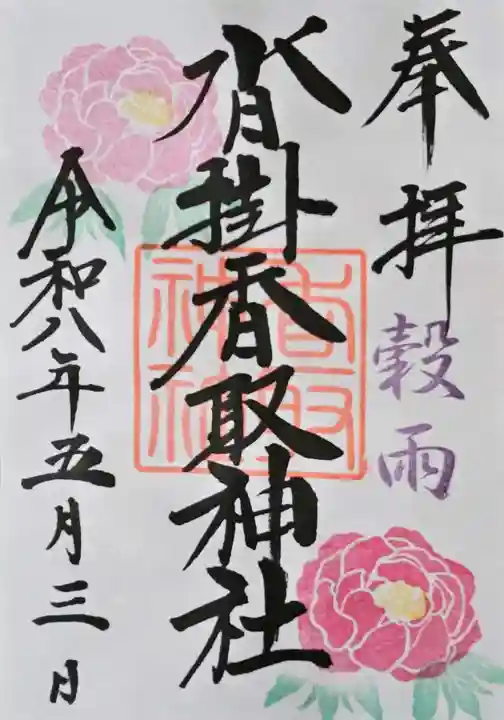 奉拝
穀雨
沓掛香取神社
香取神社
令和八年五月三日